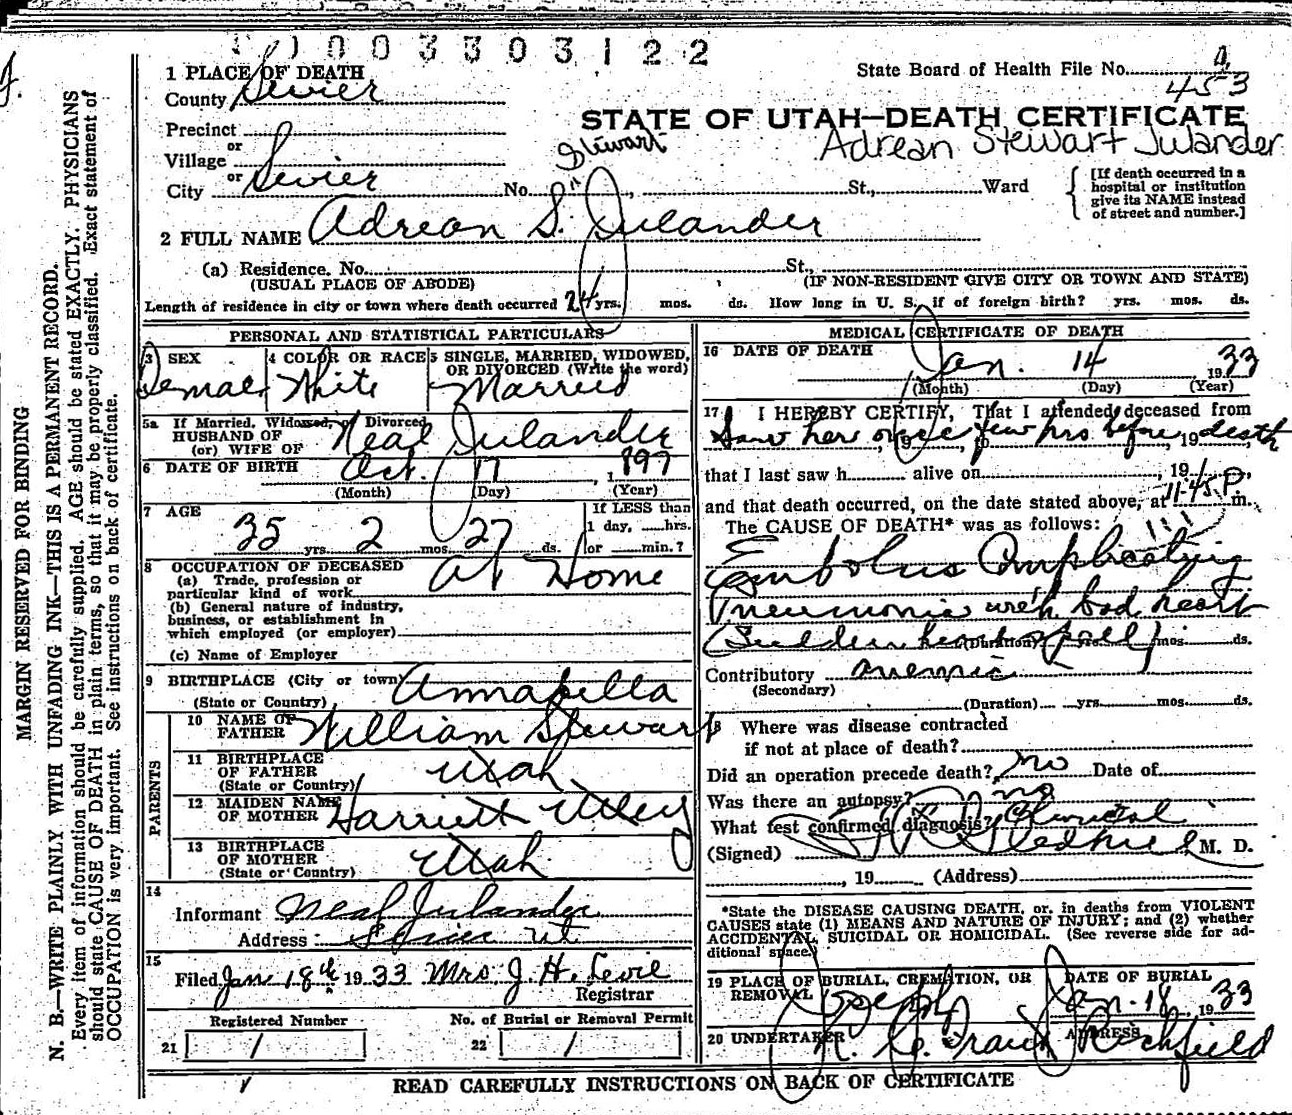 1003303122
1 PLACE OF DEATH
State Board of Health File No. 4
County Sevier
453
STATE OF UTAH—DEATH CERTIFICATE
Precinct
or
Stewart
Adrean Stewart Julander
Village
or
City Sevier No. St., Ward
[If death occurred in a
hospital or institution
give its NAME instead
of street and number.]
2 FULL NAME Adrean S. Julander
(a) Residence. No. St.,
(USUAL PLACE OF ABODE) (IF NON-RESIDENT GIVE CITY OR TOWN AND STATE)
Length of residence in city or town where death occurred 24 yrs. mos. ds. How long in U. S. if of foreign birth? yrs. mos. ds.
PERSONAL AND STATISTICAL PARTICULARS
3 SEX 4 COLOR OR RACE 5 SINGLE, MARRIED, WIDOWED,
OR DIVORCED (Write the word)
Femael White Married
5a If Married, Widowed, or Divorced
HUSBAND OF
(or) WIFE OF Neal Julander
6 DATE OF BIRTH Oct. 17, 1897
(Month) (Day) (Year)
7 AGE If LESS than
1 day, hrs.
35 yrs. 2 mos. 27 ds. or min.?
8 OCCUPATION OF DECEASED
(a) Trade, profession or
particular kind of work At Home
(b) General nature of industry,
business, or establishment in
which employed (or employer)
(c) Name of Employer
9 BIRTHPLACE (City or town) Annabella
(State or Country)
PARENTS
10 NAME OF
FATHER William Stewart
11 BIRTHPLACE
OF FATHER Utah
(State or Country)
12 MAIDEN NAME
OF MOTHER Harriett Utley
13 BIRTHPLACE
OF MOTHER Utah
(State or Country)
14
Informant Neal Julander
Address Sevier Ut
15
Filed Jan 18th 1933 Mrs J. H. Levie
Registrar
Registered Number No. of Burial or Removal Permit
21 1 22 1
MEDICAL CERTIFICATE OF DEATH
16 DATE OF DEATH
Jan. 14 1933
(Month) (Day) (Year)
17 I HEREBY CERTIFY, That I attended deceased from
Saw her once few hrs before death, 19
that I last saw h alive on , 19,
and that death occurred, on the date stated above, at 11-45 P. m.
The CAUSE OF DEATH* was as follows:
Embolus Complicating
Pneumonia with bad heart
(Sudden heart spell)
(Duration) yrs. mos. ds.
Contributory anemia
(Secondary)
(Duration) yrs. mos. ds.
18 Where was disease contracted
if not at place of death?
Did an operation precede death? no Date of
Was there an autopsy? no
What test confirmed diagnosis? Clinical
(Signed) M. D.
, 19 (Address)
*State the DISEASE CAUSING DEATH, or, in deaths from VIOLENT
CAUSES state (1) MEANS AND NATURE OF INJURY; and (2) whether
ACCIDENTAL, SUICIDAL OR HOMICIDAL. (See reverse side for ad-
ditional space.)
19 PLACE OF BURIAL, CREMATION, OR DATE OF BURIAL
REMOVAL Joseph Jan-18, 1933
20 UNDERTAKER ADDRESS
Richfield
READ CAREFULLY INSTRUCTIONS ON BACK OF CERTIFICATE
MARGIN RESERVED FOR BINDING
N. B.—WRITE PLAINLY WITH UNFADING INK—THIS IS A PERMANENT RECORD.
Every item of information should be carefully supplied. AGE should be stated EXACTLY. PHYSICIANS
should state CAUSE OF DEATH in plain terms, so that it may be properly classified. Exact statement of
OCCUPATION is very important. See instructions on back of certificate.